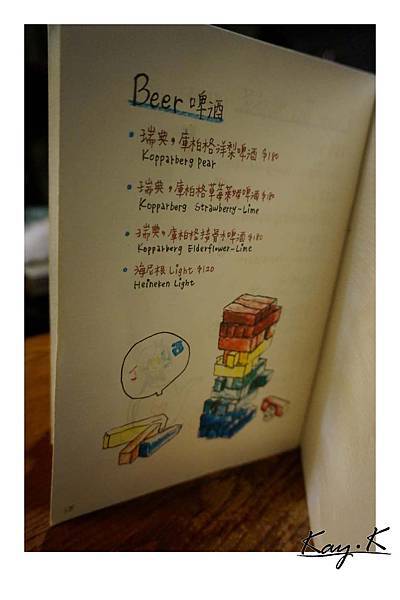 Beer 啤酒
瑞典，庫柏格洋梨啤酒 $180
Kopparberg Pear
瑞典，庫柏格草莓萊姆啤酒 $180
Kopparberg Strawberry-Lime
瑞典，庫柏格接骨木啤酒 $180
Kopparberg Elderflower-Lime
海尼根 Light $120
Heineken Light
Kay.K